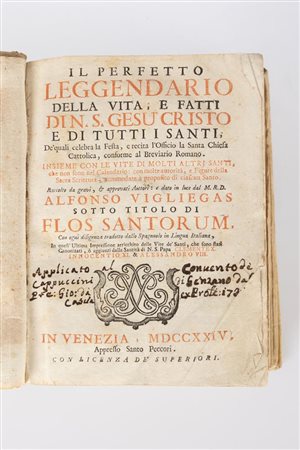 IL PERFETTO
LEGGENDARIO
DELLA VITA, E FATTI
DI N. S. GESU' CRISTO
E DI TUTTI I SANTI,
De' quali celebra la Festa, e recita l'Officio la Santa Chiesa
Cattolica, conforme al Breviario Romano.
INSIEME CON LE VITE DI MOLTI ALTRI SANTI,
che non sono nel Calendario: con molte autorità, e Figure della
Sacra Scrittura, accomodate a proposito di ciascun Santo.
Raccolto da gravi, & approvati Autori: e dato in luce dal M. R. D.
ALFONSO VIGLIEGAS
SOTTO TITOLO DI
FLOS SANTORUM.
Con ogni diligenza tradotto dallo Spagnuolo in Lingua Italiana,
In quest' Ultima Impressione arricchito delle Vite de' Santi, che sono stati
Canonizati, & aggiunti dalla Santità di N. S. Papa CLEMENTE X.
INNOCENTIO XI. & ALESSANDRO VIII.
Applicato al Convento de
Cappuccini di
IN VENEZIA, MDCCXXIV.
Appresso Santo Pecori.
CON LICENZA DE' SUPERIORI.